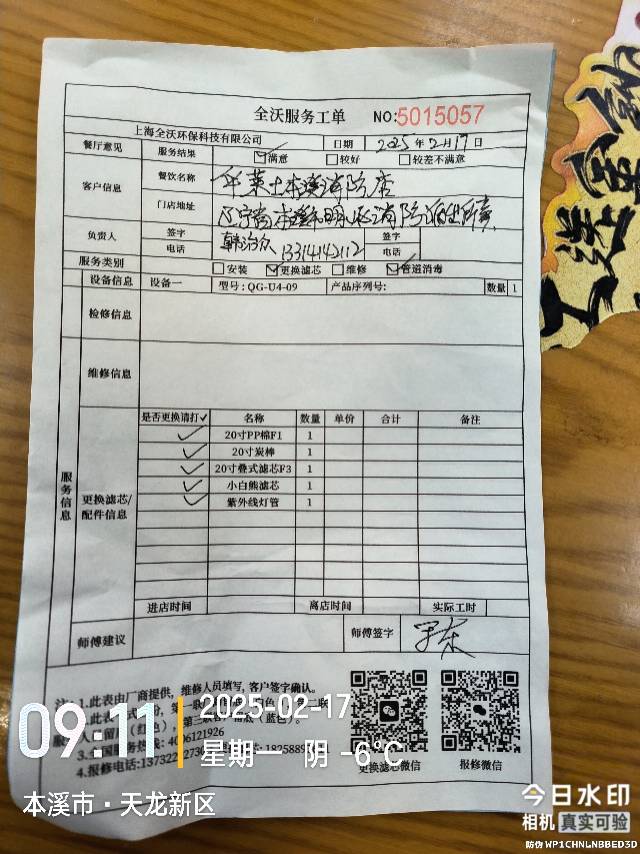 全沃服务工单 NO:5015057
上海全沃环保科技有限公司 日期 2025年2月17日
餐厅意见 服务结果 满意 较好 较差不满意
客户信息 餐饮名称 华莱士本溪消防店
门店地址 辽宁省本溪市明山区消防
负责人 签字 签字
电话 13314142112 电话
服务类别 安装 更换滤芯 维修 管道消毒
设备信息 设备一 型号:QG-U4-09 产品序列号: 数量 1
检修信息
维修信息
服务信息
更换滤芯/配件信息
是否更换请打✓ 名称 数量 单价 合计 备注
✓ 20寸PP棉F1 1
✓ 20寸炭棒 1
✓ 20寸叠式滤芯F3 1
✓ 小白熊滤芯 1
✓ 紫外线灯管 1
进店时间 离店时间 实际工时
师傅建议 师傅签字
注:1.此表由厂商提供,维修人员填写,客户签字确认。
4006121926
4.报修电话:
更换滤芯微信 报修微信
09:11 2025-02-17
星期一 阴 -6°C
本溪市·天龙新区
今日水印
相机 真实可验
防伪 WP1CHNLNBBED3D